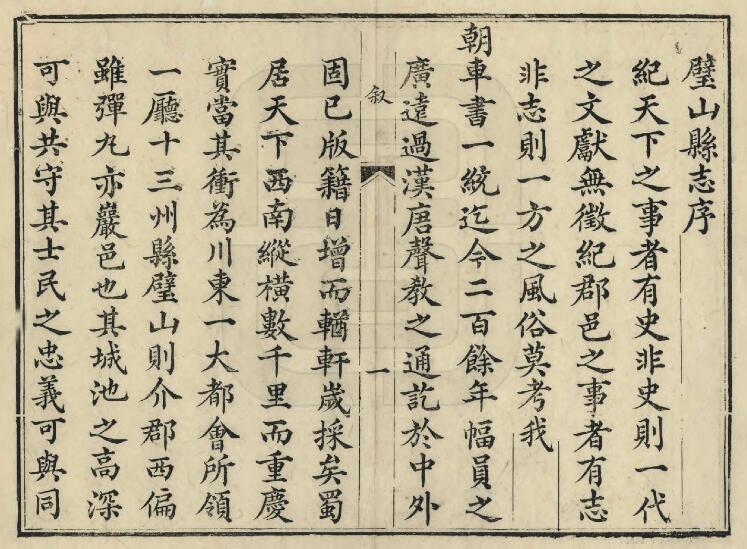 璧山縣志序
紀天下之事者有史非史則一代
之文獻無徵紀郡邑之事者有志
非志則一方之風俗莫考我
朝車書一統迄今二百餘年幅員之
廣遠過漢唐聲教之通訖於中外
叙
一
固已版籍日增而輶軒歲採矣蜀
居天下西南縱橫數千里而重慶
實當其衝為川東一大都會所領
一廳十三州縣璧山則介郡西偏
雖彈丸亦巖邑也其城池之高深
可與共守其士民之忠義可與同